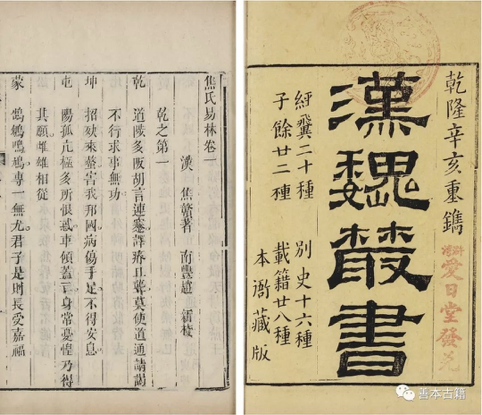 乾隆辛亥重鐫
漢魏叢書
愛日堂發兌
經翼二十種 別史十六種
子餘廿二種 載籍廿八種
本衙藏版
焦氏易林卷一
漢 焦贛著 南豐趙 校
乾之第一
乾 道陟多阪胡言連蹇譯瘖且聾莫使道通請謁
不行求事無功
坤 招殃來螫害我邦國病傷手足不得安息
屯 陽孤亢極多所恨惑車傾蓋亡身常憂惶乃得
其願雌雄相從
蒙 鵠鵴鳲鳩專一無尤君子是則長受嘉福
善本古籍